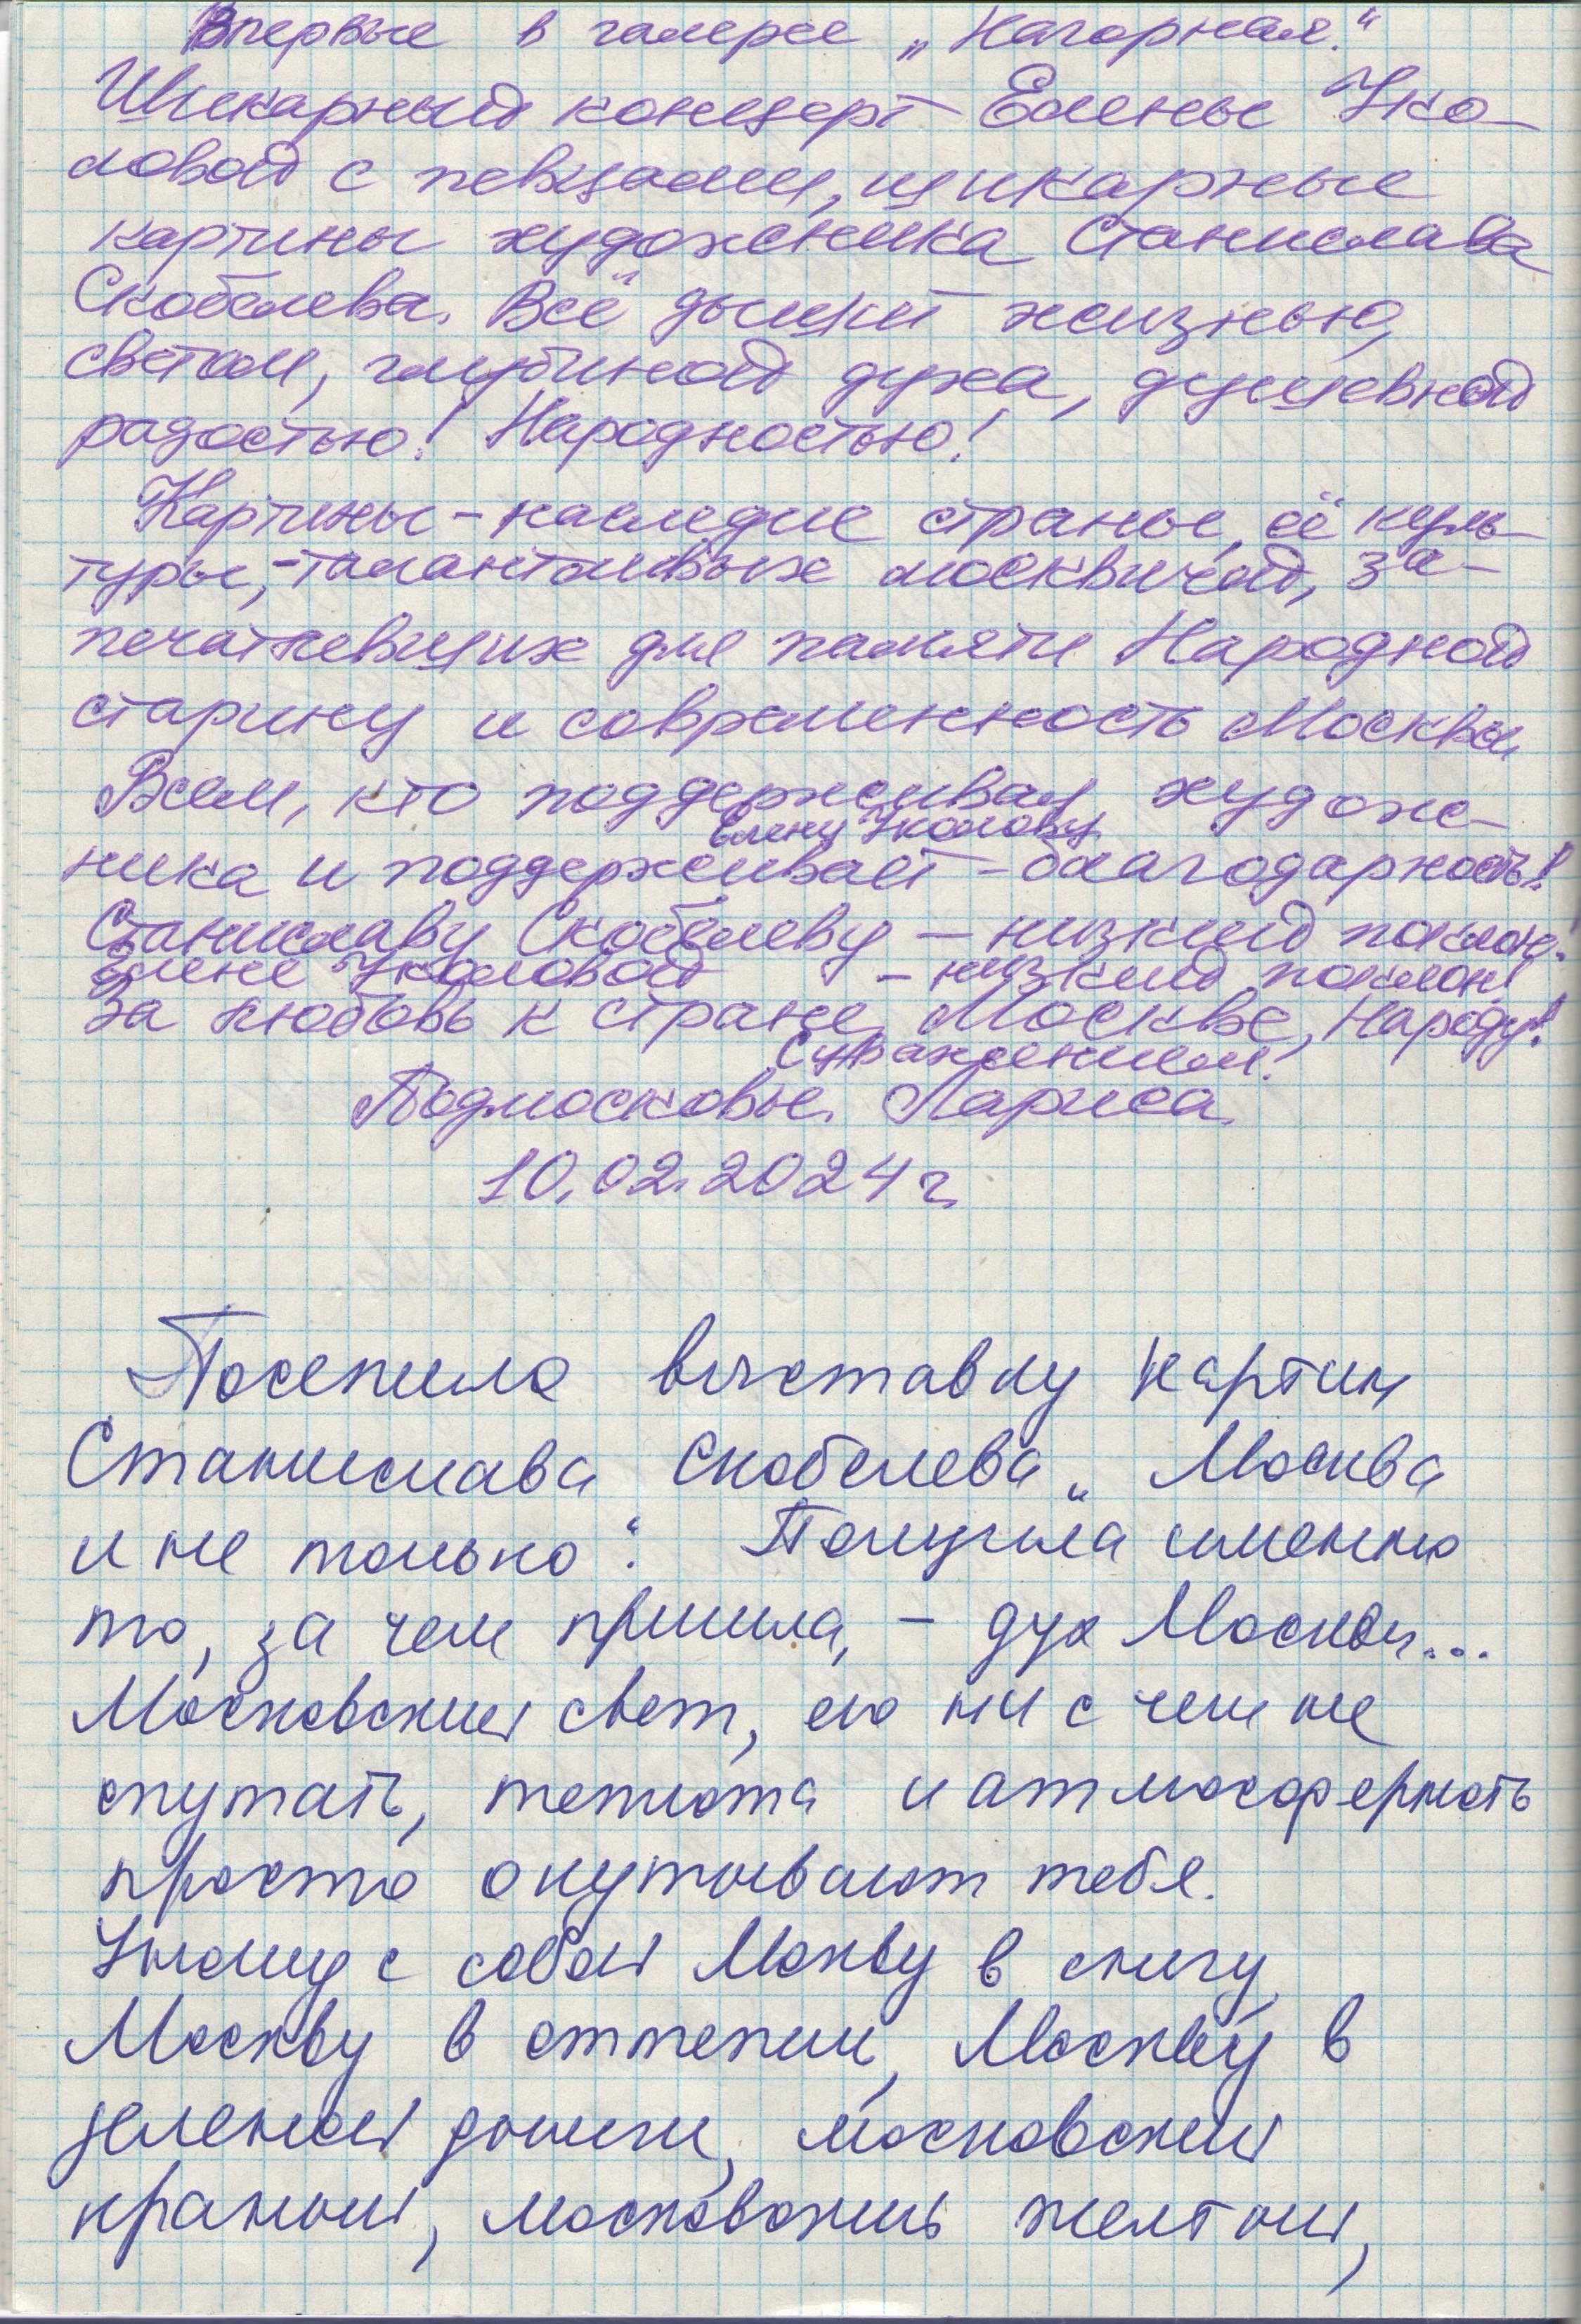 Впервые в галерее „Нагорная."
Шикарный концерт Елены Уко-
ловой с певцами, шикарные
картины художника Станислава
Скобелева. Всё дышит жизнью,
светом, глубиной духа, душевной
радостью! Народностью!
Картины - наследие страны, её куль-
туры, - талантливых москвичей, за-
печатлевших для памяти Народной
старину и современность Москвы
Всем, кто поддерживал худож-
Елену Уколову
ника и поддерживает - благодарность!
Станиславу Скобелеву - низкий поклон!
Елене Уколовой - низкий поклон!
За любовь к стране, Москве, Народу!
С уважением!
Подмосковье. Лариса.
10.02.2024 г.
Посетила выставку картин
Станислава Скобелева „Москва
и не только". Получила именно
то, за чем пришла, - дух Москвы...
Московский свет, его ни с чем не
спутать, теплота и атмосферность
просто окутывают тебя.
Уношу с собой Москву в снегу,
Москву в оттепели, Москву в
зеленой дымке, московский
красный, московский желтый,